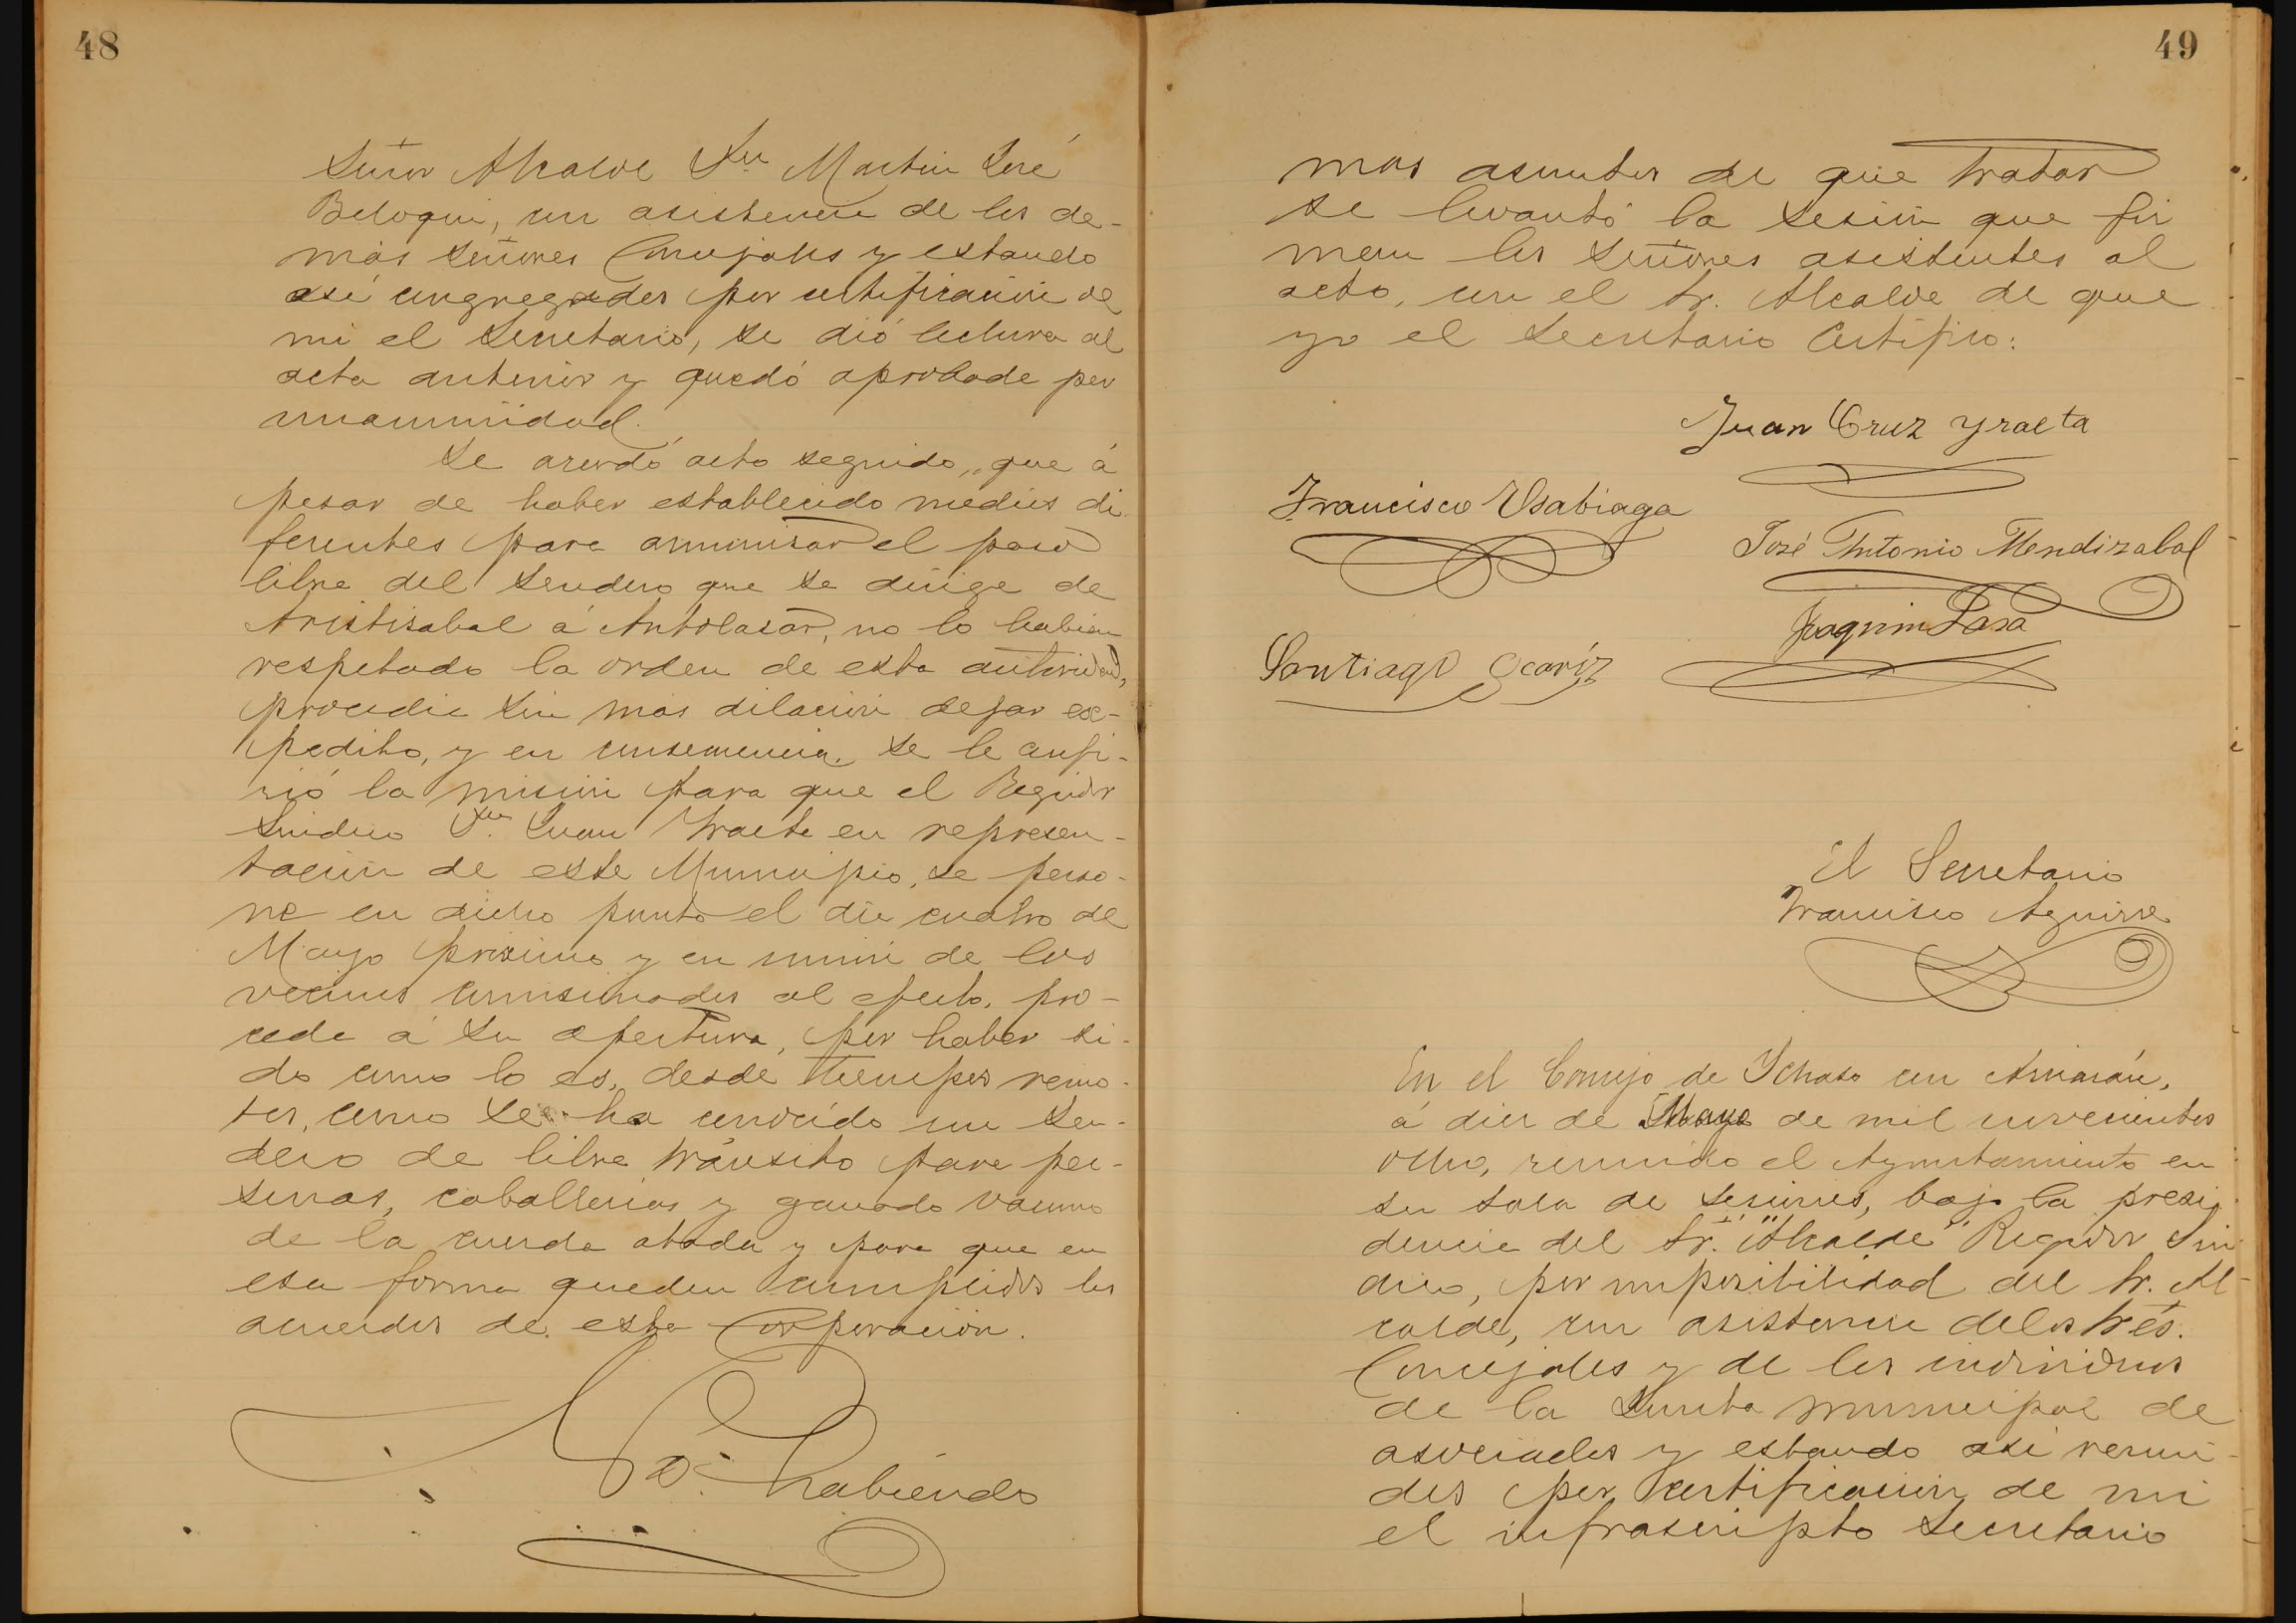 48
Señor Alcalde Dn Martin José
Beloqui, con asistencia de los de-
más señores Concejales y estando
así congregados por certificación de
mi el Secretario, se dió lectura al
acta anterior y quedó aprobada por
unanimidad.
Se acordó acto seguido, que á
pesar de haber establecido medios di-
ferentes para armonisar el paso
libre del sendero que se dirige de
Aristisabal á Antolasar, no lo habian
respetado la orden de esta autoridad,
procedia sin mas dilación dejar ex-
pedito, y en consecuencia se le confi-
rió la misión para que el Regidor
Sindico Dn Juan Yraeta en represen-
tación de este Municipio, se perso-
ne en dicho punto el dia cuatro de
Mayo próximo y en unión de los
vecinos comisionados al efecto, pro-
ceda á su apertura, por haber si-
do como lo es, desde tiempos remo-
tos, como se ha conocido un sen-
dero de libre tránsito para per-
sonas, caballerias y ganado vacuno
de la cuerda atada y para que en
esa forma queden cumplidos los
acuerdos de esta Corporación.
No habiendo
49
mas asuntos de que tratar
se levantó la sesión que fir
man los señores asistentes al
acto, con el Sr. Alcalde de que
yo el Secretario Certifico:
Juan Cruz Yraeta
Francisco Usabiaga
José Antonio Mendizabal
Joaquin Lasa
Santiago Ocariz
El Secretario
Francisco Aguirre
En el Concejo de Ichaso con Arriarán,
á diez de Mayo de mil novecientos
ocho, reunido el Ayuntamiento en
su sala de sesiones, bajo la presi
dencia del Sr. "Alcalde" Regidor Sin
dico, por imposibilidad del Sr. Al
calde, con asistencia de los tres.
Concejales y de los individuos
de la Junta municipal de
asociados y estando así reuni-
dos por certificación de mi
el infrascripto Secretario